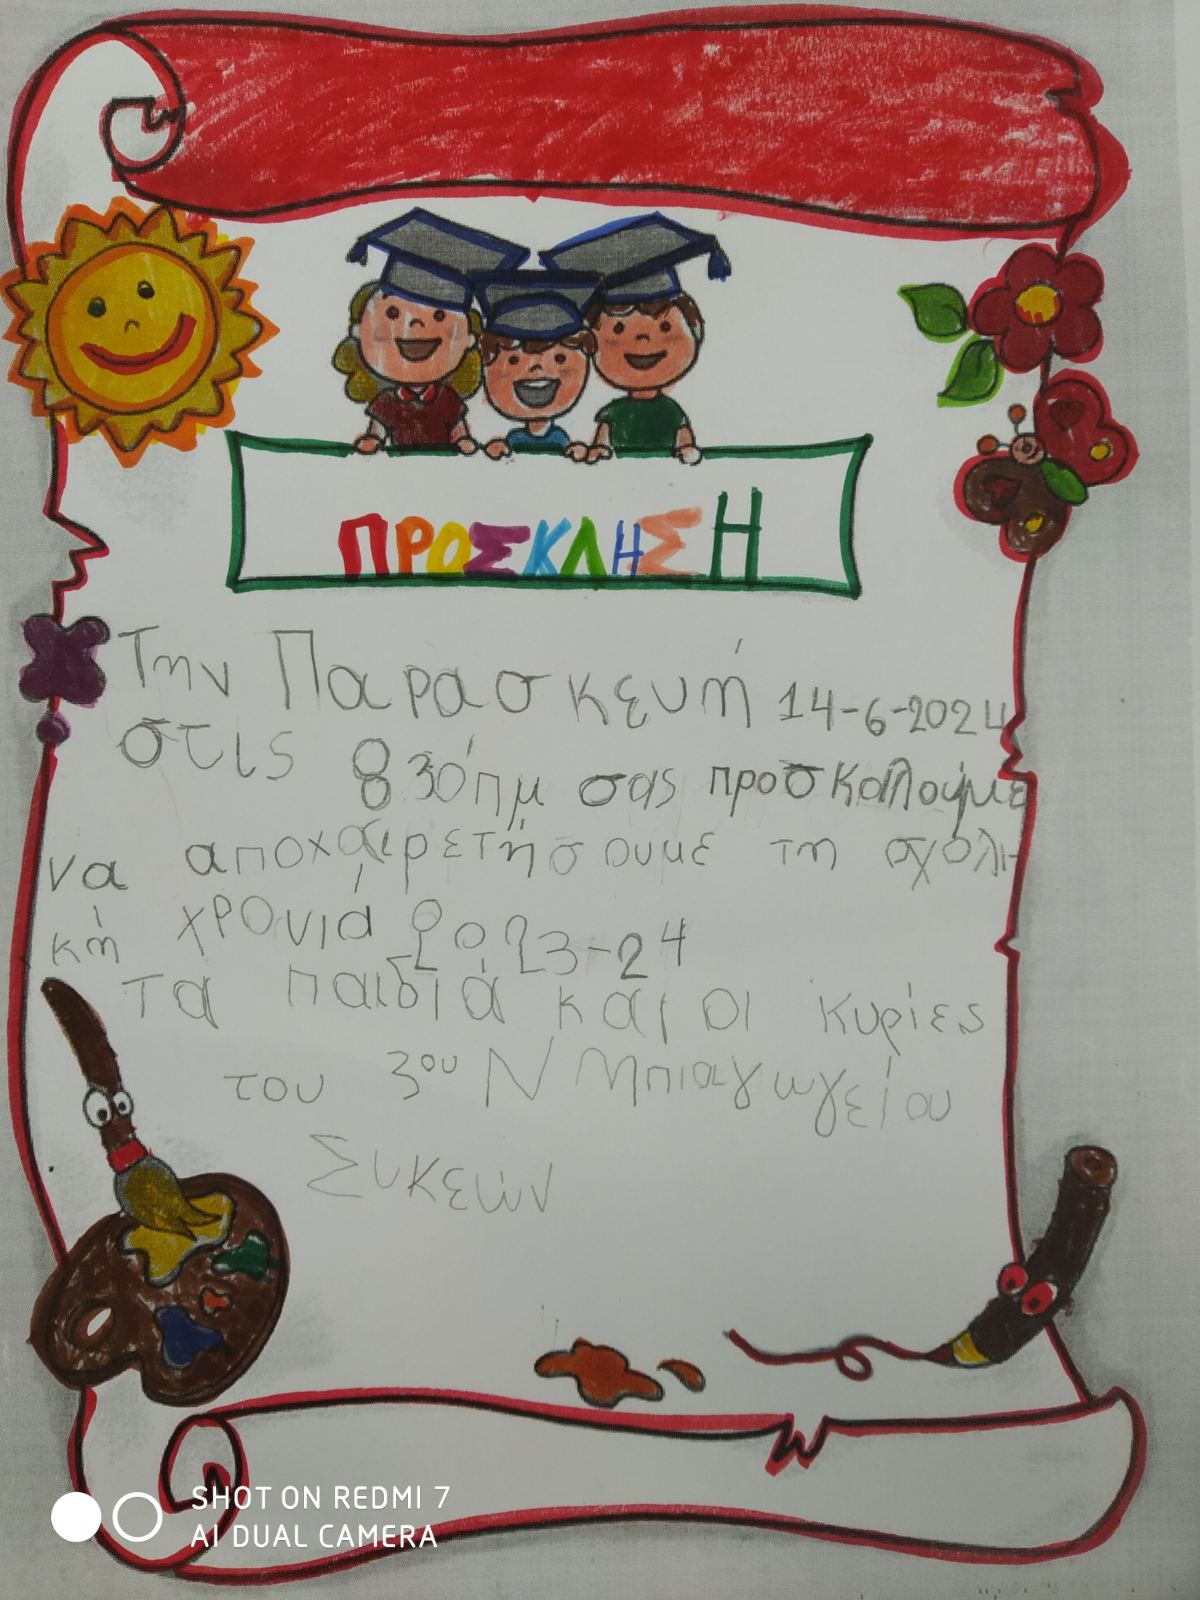 ΠΡΟΣΚΛΗΣΗ
Την Παρασκευή 14-6-2024
στις 830΄πμ σας προσκαλούμε
να αποχαιρετήσουμε τη σχολι-
κή χρονιά 2023-24
Τα παιδιά και οι κυρίες
του 3ου Νηπιαγωγείου
Συκεών
SHOT ON REDMI 7
AI DUAL CAMERA